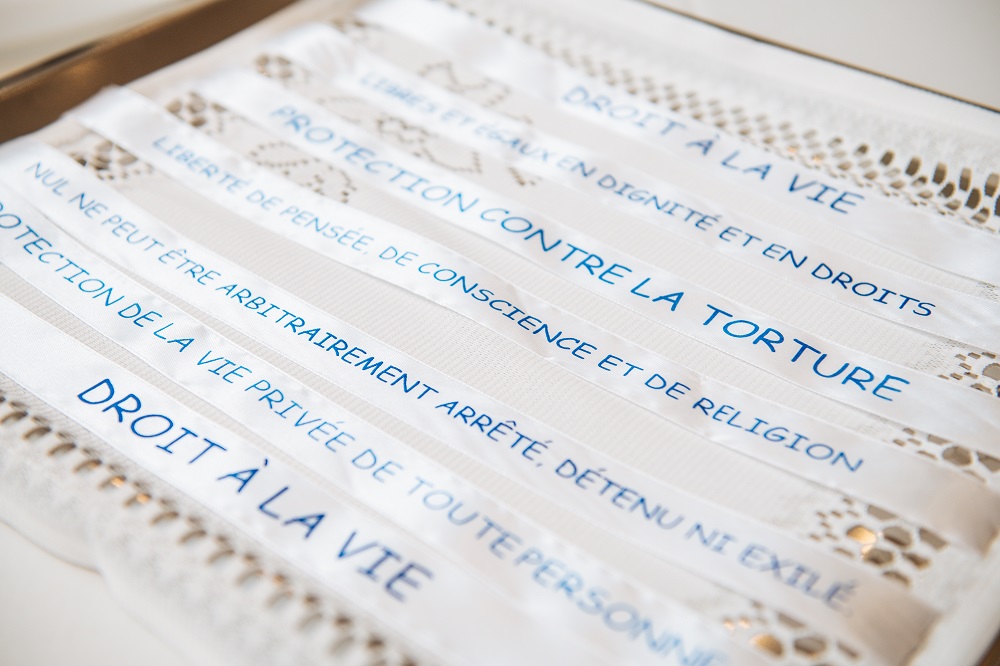 DROIT À LA VIE
LIBRES ET EGAUX EN DIGNITÉ ET EN DROITS
PROTECTION CONTRE LA TORTURE
LIBERTÉ DE PENSÉE, DE CONSCIENCE ET DE RELIGION
NUL NE PEUT ÊTRE ARBITRAIREMENT ARRÊTÉ, DÉTENU NI EXILÉ
PROTECTION DE LA VIE PRIVÉE DE TOUTE PERSONNE
DROIT À LA VIE